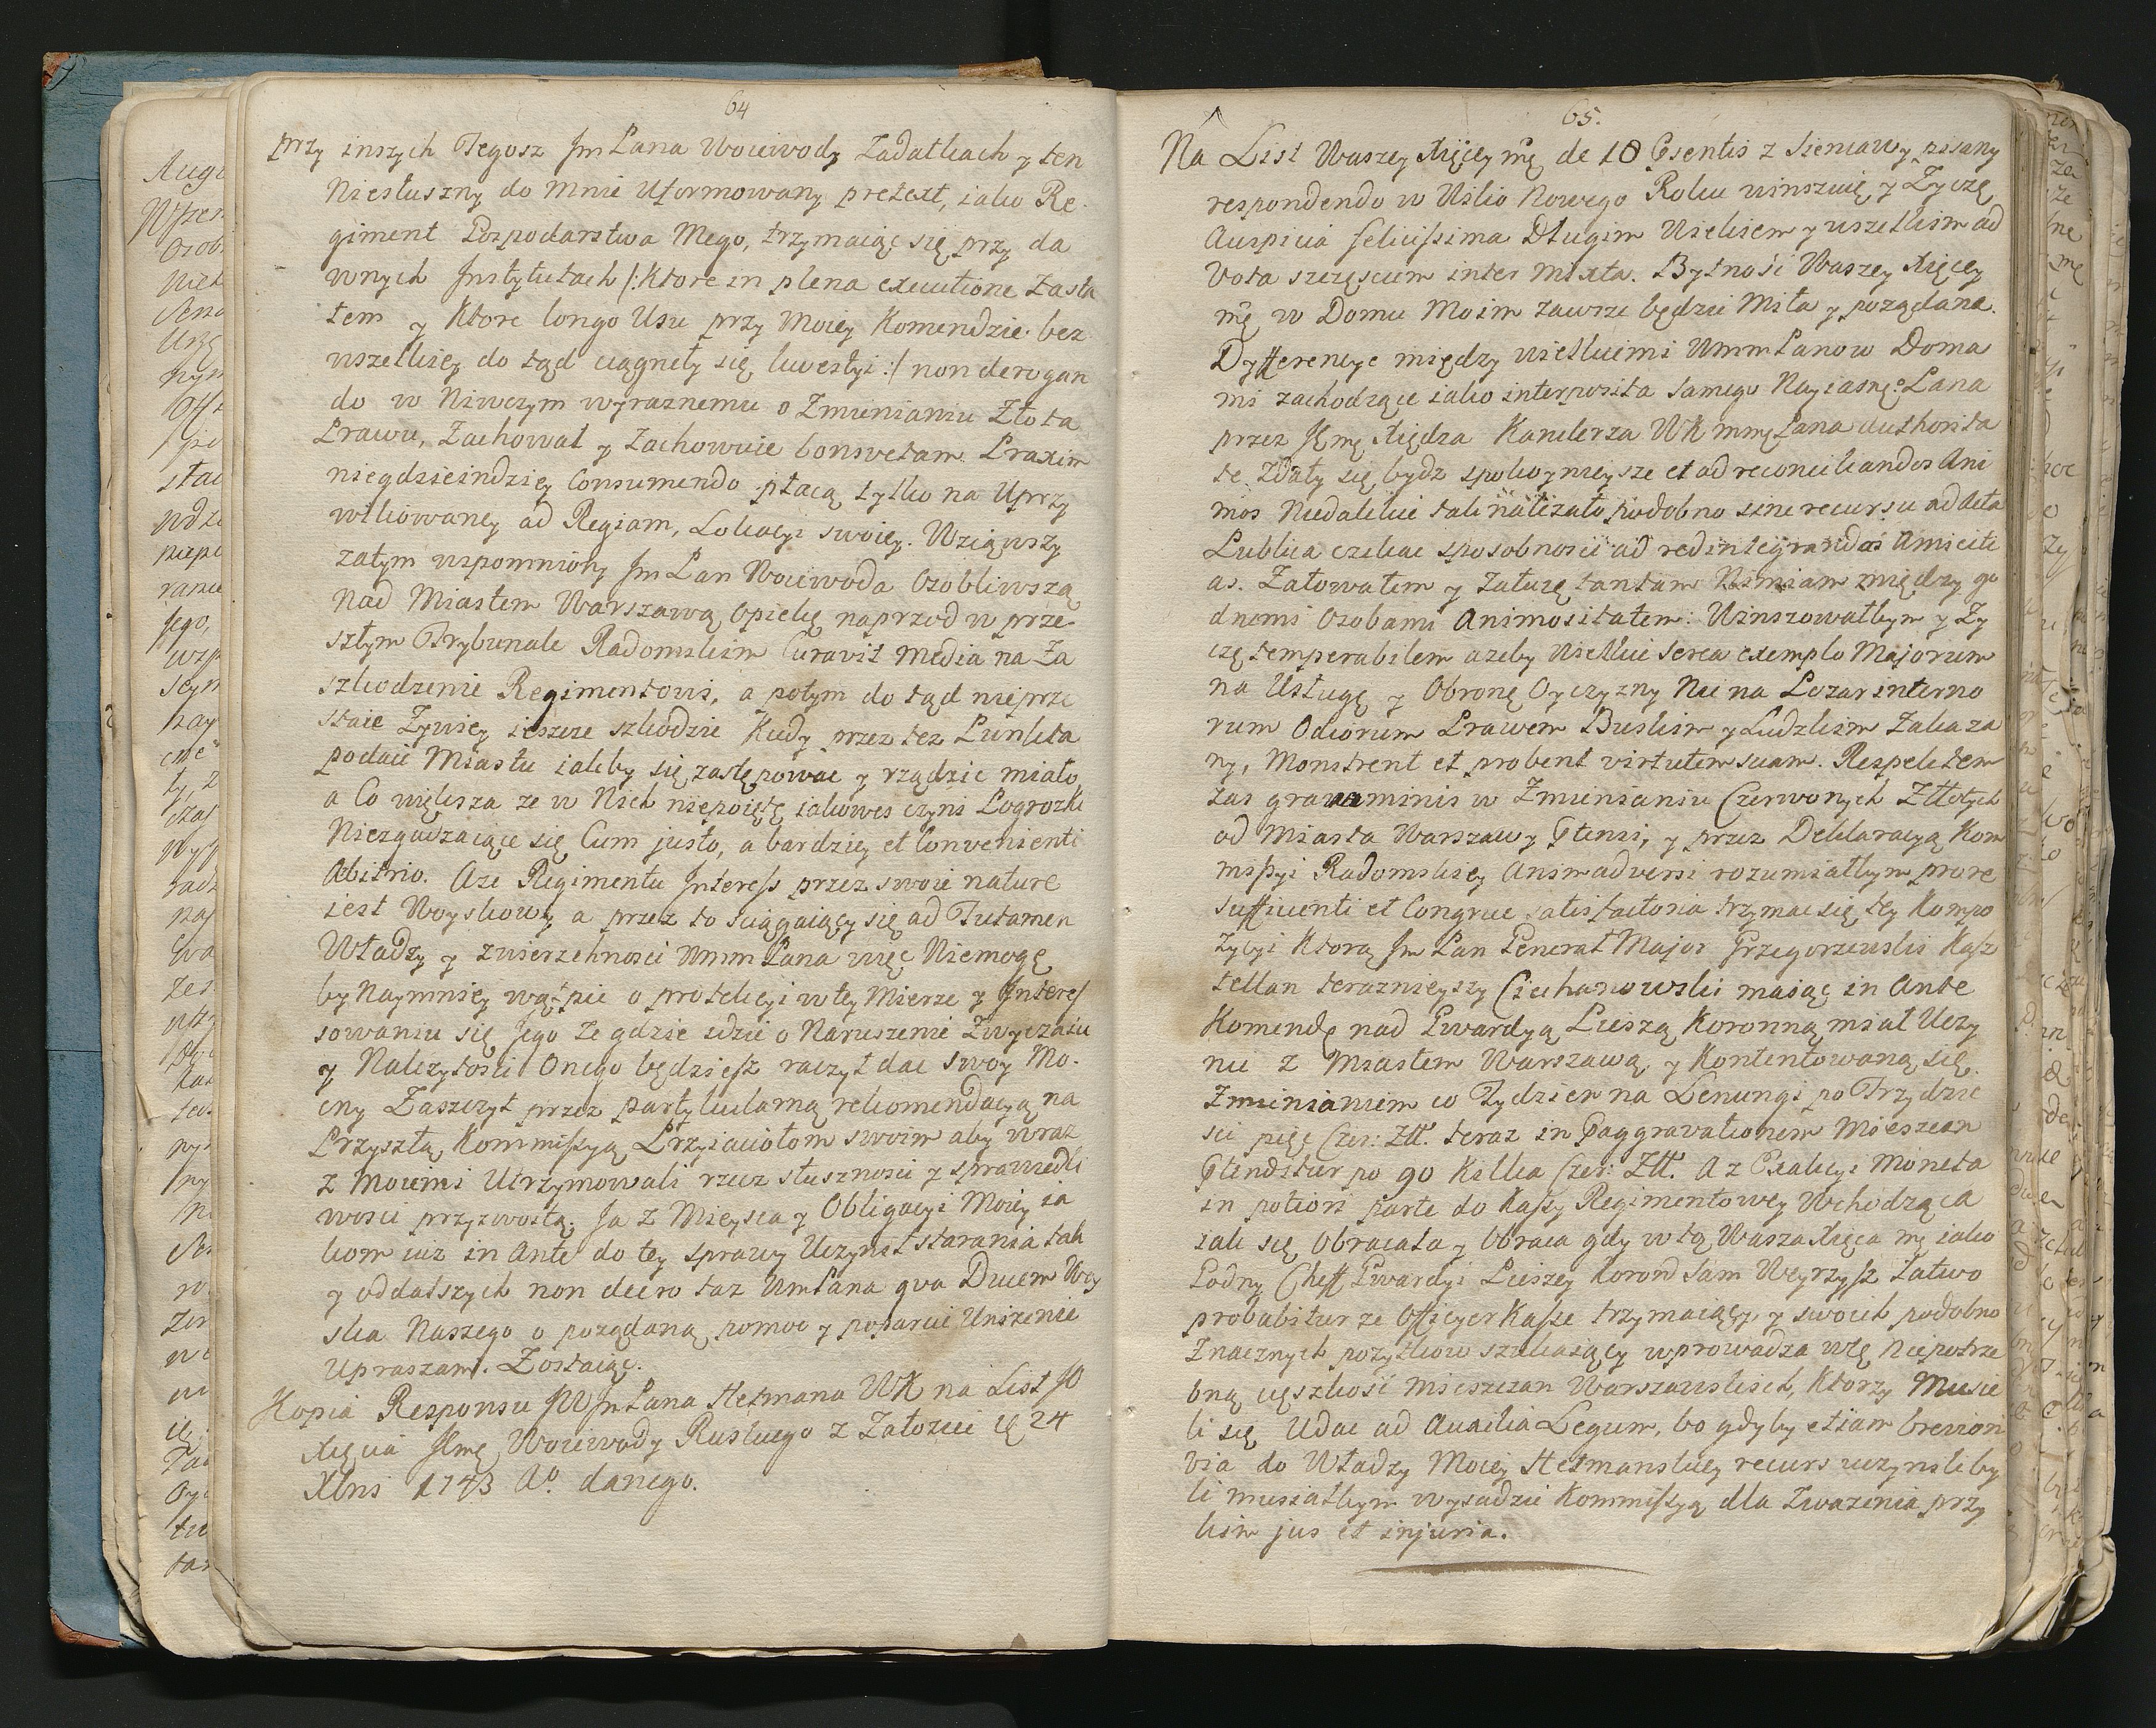 64
przy inszych Tegosz Jm Pana Woiewody Zadatkach y ten
Niesłuszny do mnie Uformowany pretext, iako Re-
giment Gospodarstwa Mego, trzymaiąc się przy da
wnych Jnstytutach /: Ktore in plena executione Zasta
łem y Ktore longo Usu przy moiey Komendzie bez
wszelkiey do tąd ciągneły się kwestyi :/ non derogan
do w Niwczym wyraznemu o Zmienianiu Złota
Prawu, Zachował y Zachowuie Consvetam Praxim
niegdzieindziey Consumendo płacą tylko na Uprzy
wiliowaney ad Regiam, Lokacyi swoiey. Wziąwszy
zatym wspomniony Jm Pan Woiewoda Osobliwszą
Nad Miastem Warszawą Opiekę naprzod w prze-
szłym Trybunale Radomskim Curavit media na Za
szkodzenie Regimentowi, a potym do tąd nieprze
staie Zywiey ieszcze szkodzic Kiedy przez tez Punkta
podaie Miastu iakby się zastępowac y rządzic miało
a Co większa ze w Nich niepoiętę iakowes czyni Pogrozki
Niezgadzaiące się Cum justo, a bardziey et Convenienti
Abitrio. Aze Regimentu Jnteress przez swoie nature
iest Woyskowy a przez to sciągaiący się ad Tutamen
Władzy y zwierzchnosci Wmm Pana więc Niemogę
by Naymniey wątpic o protekcyi w tey Mierze y Jnteres
sowaniu się Jego Ze gdzie idzie o Naruszenie Zwyczaiu
y Nalezytosci Onego będziesz raczył dac swoy Mo-
cny Zaszczyt przez partykularną rekomendacyą na
Przyszłą Kommissyą Przyiaciołom swoim aby wraz
z Moiemi Utrzymowali rzecz słusznosci y sprawiedli
wosci przyzwoitą. Ja z Mieysca y Obligacyi Moiey ia
kom iuz in Ante do tey sprawy Uczynił starania tak
y oddalszych non deero taz Wm Pana qva Ducem Woy
ska Naszego o poządaną pomoc y poparcie Unizenie
Upraszam. Zostaiąc.
Kopia Responsu JW Jm Pana Hetmana WK na List JO
Xięcia Jmę Woiewody Ruskiego z Załozcie
Xbris 1743 Ao. danego.
65.
Na List Waszey Xięcey mę de 18 Psentis z Sieniawy pisany
respondendo w Niskio Nowego Roku winszuię y Zyczę
Auspicia felicissima Długim Wiekiem y wszelkim ad
Vota szczęsciem inter mixta. Bytnosc Waszey Xięcey
mę w Domu Moim zawsze będzie Miła y poządana.
Dyfferencye między wielkiemi Wmm Panow Doma
mi zachodzące iako interposita samego Nayiasnego Pana
przez Jmę Xiędza Kanclerza WK mmę Pana authorita
te Zdały się bydz spokoynieysze et ad reconciliandos Ani
mos podobno sine recursu ad Acta
Publica czekac sposobnosci ad redintegrandas Amiciti
as. Załowałem y Załuię tantam Nimiam między go
dnemi Osobami Animositatem: Winszowałbym y Zy
czę temperabilem azeby Wielkie serca exemplo Majorum
na Usługę y Obronę Oyczyzny Nie na Pozar interno
rum Odiorum Prawem Buskim y Ludzkim Zakaza
ny, Monstrent et probent virtutem suam. Respektem
zas gravaminis w Zmienianiu Czerwonych Złłotych
od Miasta Warszawy Ptensi, y przez Deklaracyą Kom
missyi Radomskiey Animadversi rozumiałbym pro re
sufficienti et Congrue satisfactoria trzymac się tey Kompo
zycyi Ktorą Jm Pan General Major Grzegorzewski Kasz
tellan terazni­eyszy Ciechanowski maiąc in Ante
Komendę nad Gwardyą Pieszą Koronną miał Uczy
nic z Miastem Warszawą y Kontentowaną się
Zmienianiem co Tydzien na Lenungi po Trzydzie
sci pięc Czer: Złł. teraz in Paggravationem Mieszczan
Ptenditur po 90 Kilka Czer: Złł. A z Moneta
in potiori parte do Kassy Regimentowey Wchodząca
iak się Obracała y Obraca gdy w tą Wasza Xięca mę iako
Godny Cheff Gwardyi Pieszey Koron Sam Weyrzysz łatwo
probabitur ze Officyer Kasse trzymaiący, y swoich podobno
Znacznych pozytkow szukaiący wprowadza wtę Niepotrze
bną cięszkosc Mieszczan Warszawskich, Ktorzy Musie
li się Udac ad Auxilia Legum, bo gdyby etiam breviori
via do Władzy Moiey Hetmanskiey recurs uczynili by
li musiałbym wysadzic Kommissyą dla Zwazenia przy
kim jus et injuria.